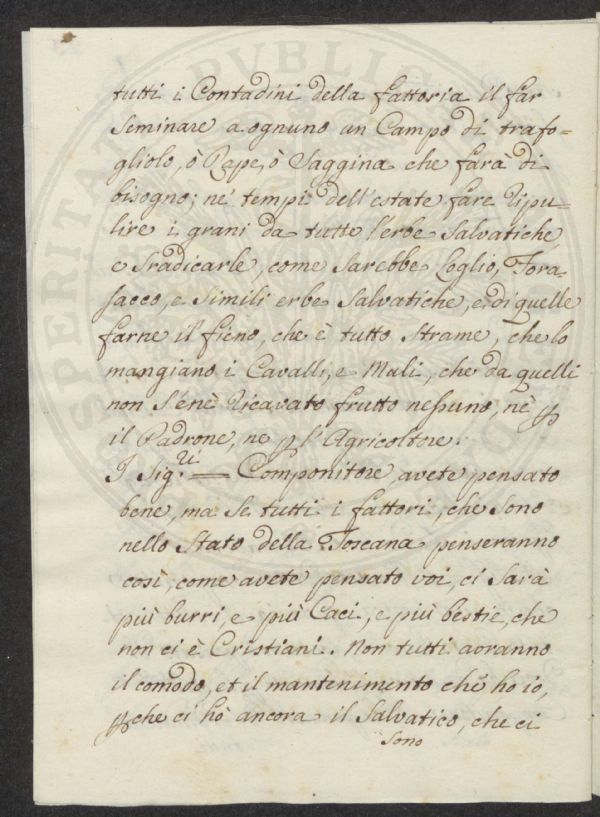 tutti i Contadini della fattoria il far
Seminare a ognuno un Campo di trafo=
gliolo, ò Rape, ò Saggina che farà di
bisogno; ne' tempi dell'estate fare Ripu=
lire i grani da tutte l'erbe Salvatiche
e Sradicarle, come Sarebbe Loglio, Fora=
Sacco, e Simili erbe Salvatiche, e di quelle
farne il fieno, che è tutto Strame, che lo
mangiano i Cavalli, e Muli, che da quelli
non S'enè Ricavato frutto nessuno, nè p
il Padrone, ne p l'Agricoltore.
I Sig.ri = Componitore, avete pensato
bene, ma Se tutti i fattori, che Sono
nello Stato della Toscana penseranno
così, come avete pensato voi, ci Sarà
più burri, e più Caci, e più bestie, che
non ci è Cristiani. Non tutti avranno
il comodo, et il mantenimento chè ho io,
pche ci hò ancora il Salvatico, che ci
Sono
PUBLIC